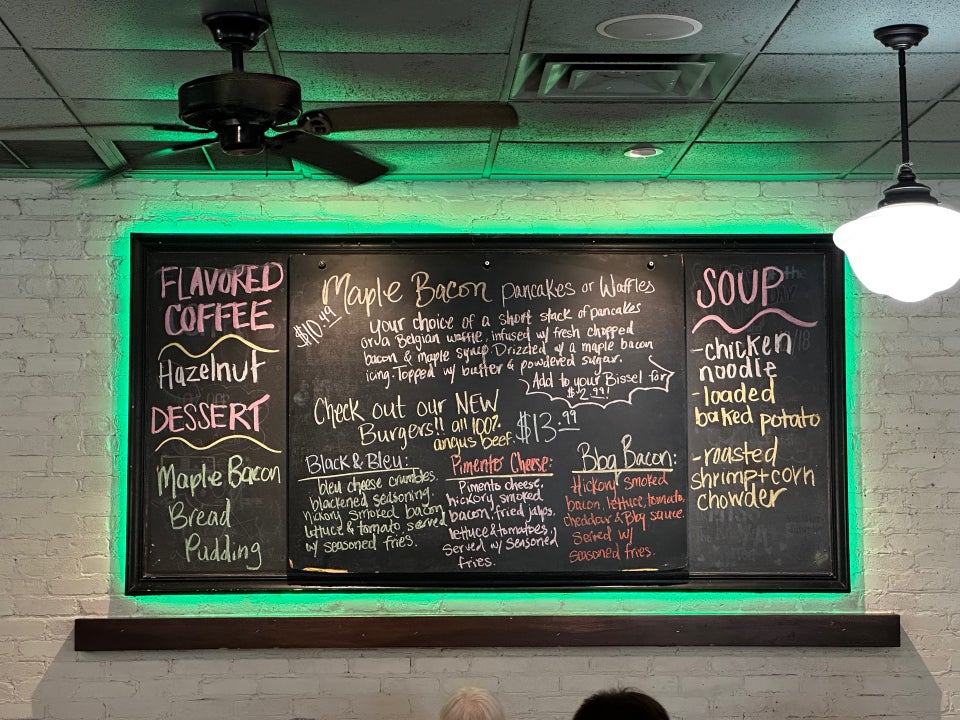 FLAVORED
COFFEE
Hazelnut
DESSERT
Maple Bacon
Bread
Pudding
Maple Bacon pancakes or Waffles
$10.49
your choice of a short stack of pancakes
or a Belgian waffle, infused w/ fresh chopped
bacon & maple syrup. Drizzled w/ a maple bacon
icing. Topped w/ butter & powdered sugar.
Add to your Bissel for
$2.99!
Check out our NEW
Burgers!! all 100%
angus beef.
$13.99
Black & Bleu:
bleu cheese crumbles.
blackened seasoning.
hickory smoked bacon,
lettuce & tomato served
w/ seasoned fries.
Pimento Cheese:
Pimento cheese,
hickory smoked
bacon, fried jalps.
lettuce & tomatoes,
Served w/ Seasoned
fries.
Bbq Bacon:
Hickory smoked
bacon, lettuce, tomato,
cheddar & Bbq sauce.
Served w/
seasoned fries.
SOUP
-chicken
noodle
-loaded
baked potato
-roasted
shrimp + corn
chowder